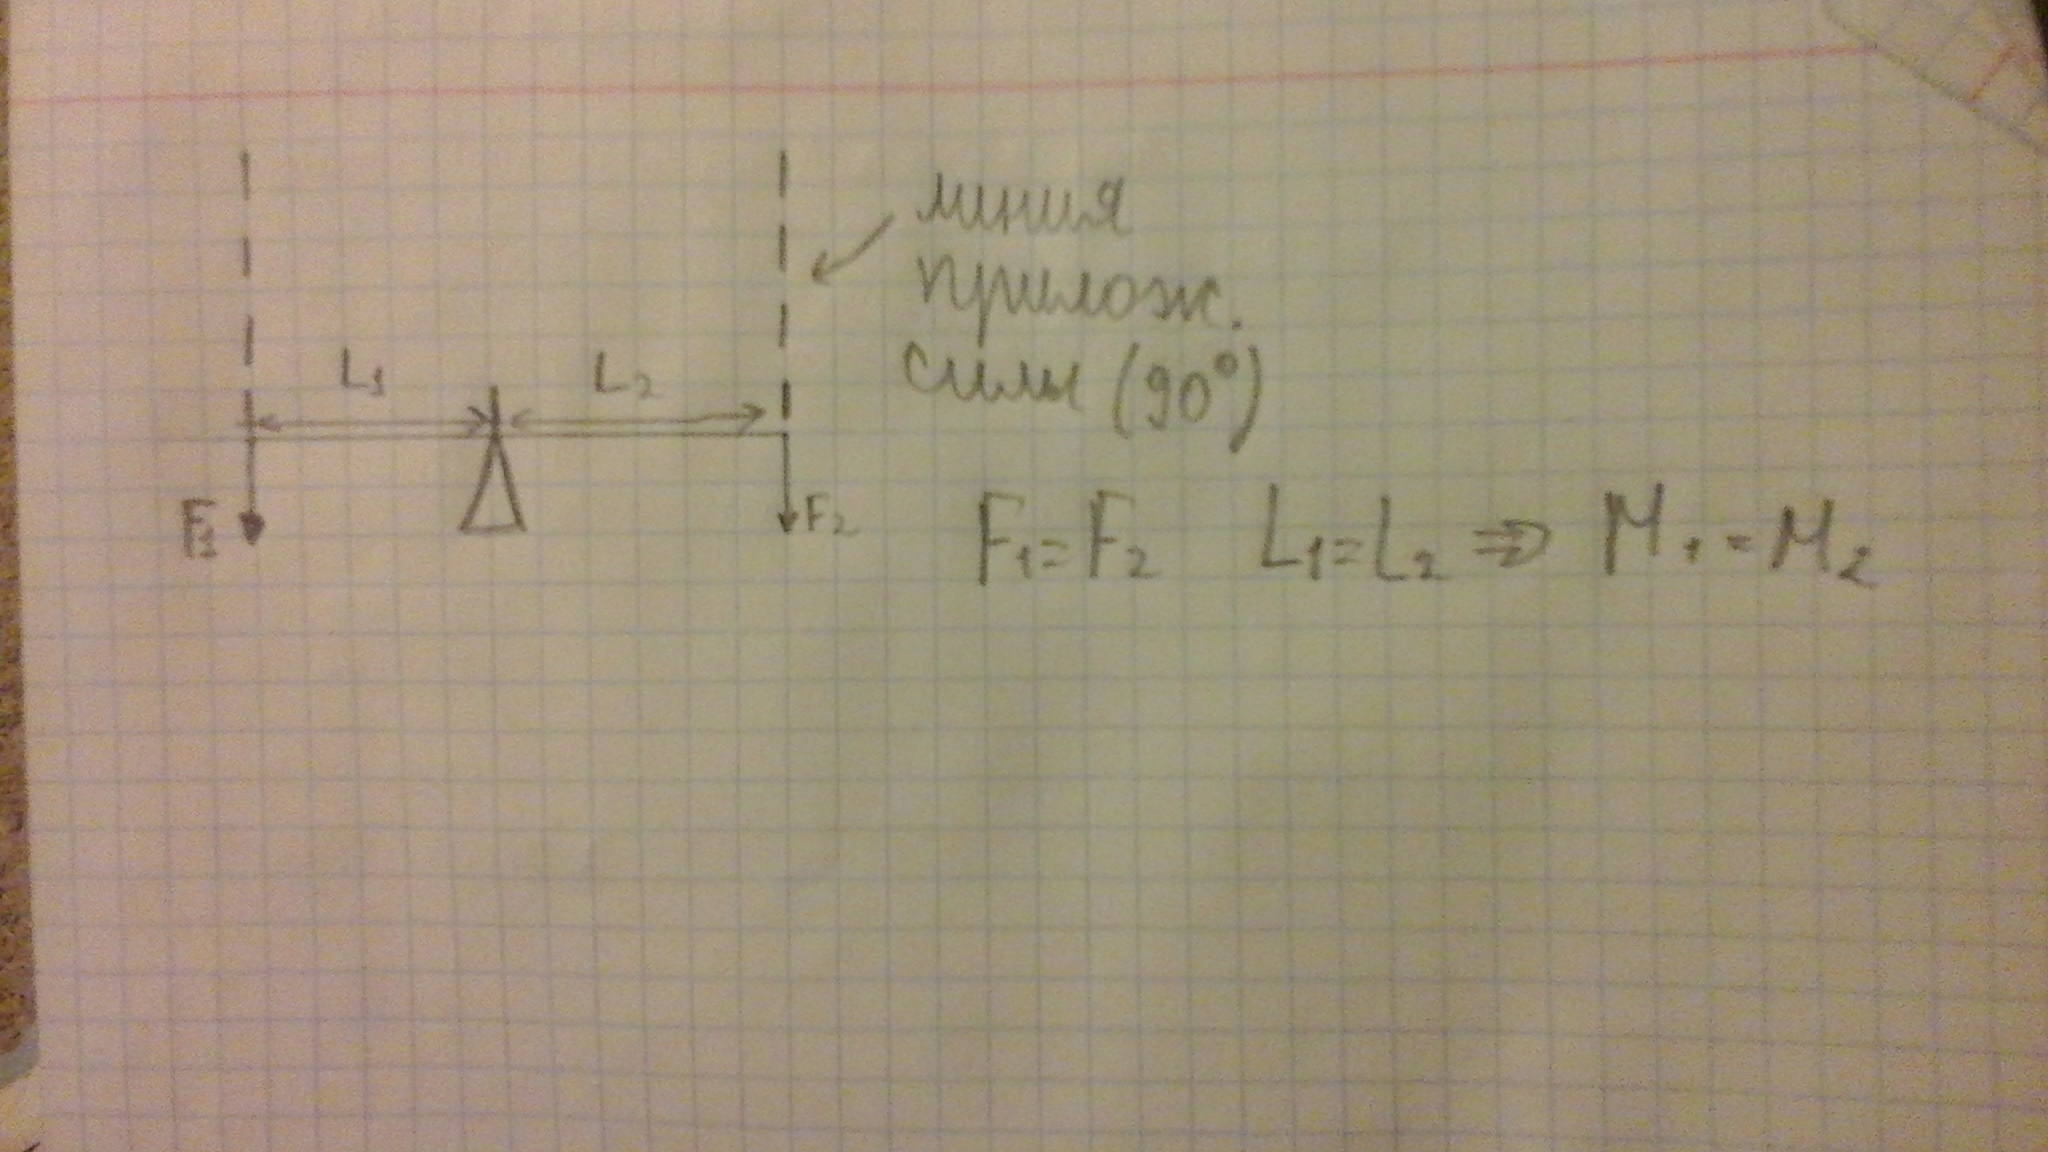 линия
прилож.
силы (90°)
L₁ L₂
F₁ F₂
F₁=F₂ L₁=L₂ ⇒ M₁=M₂